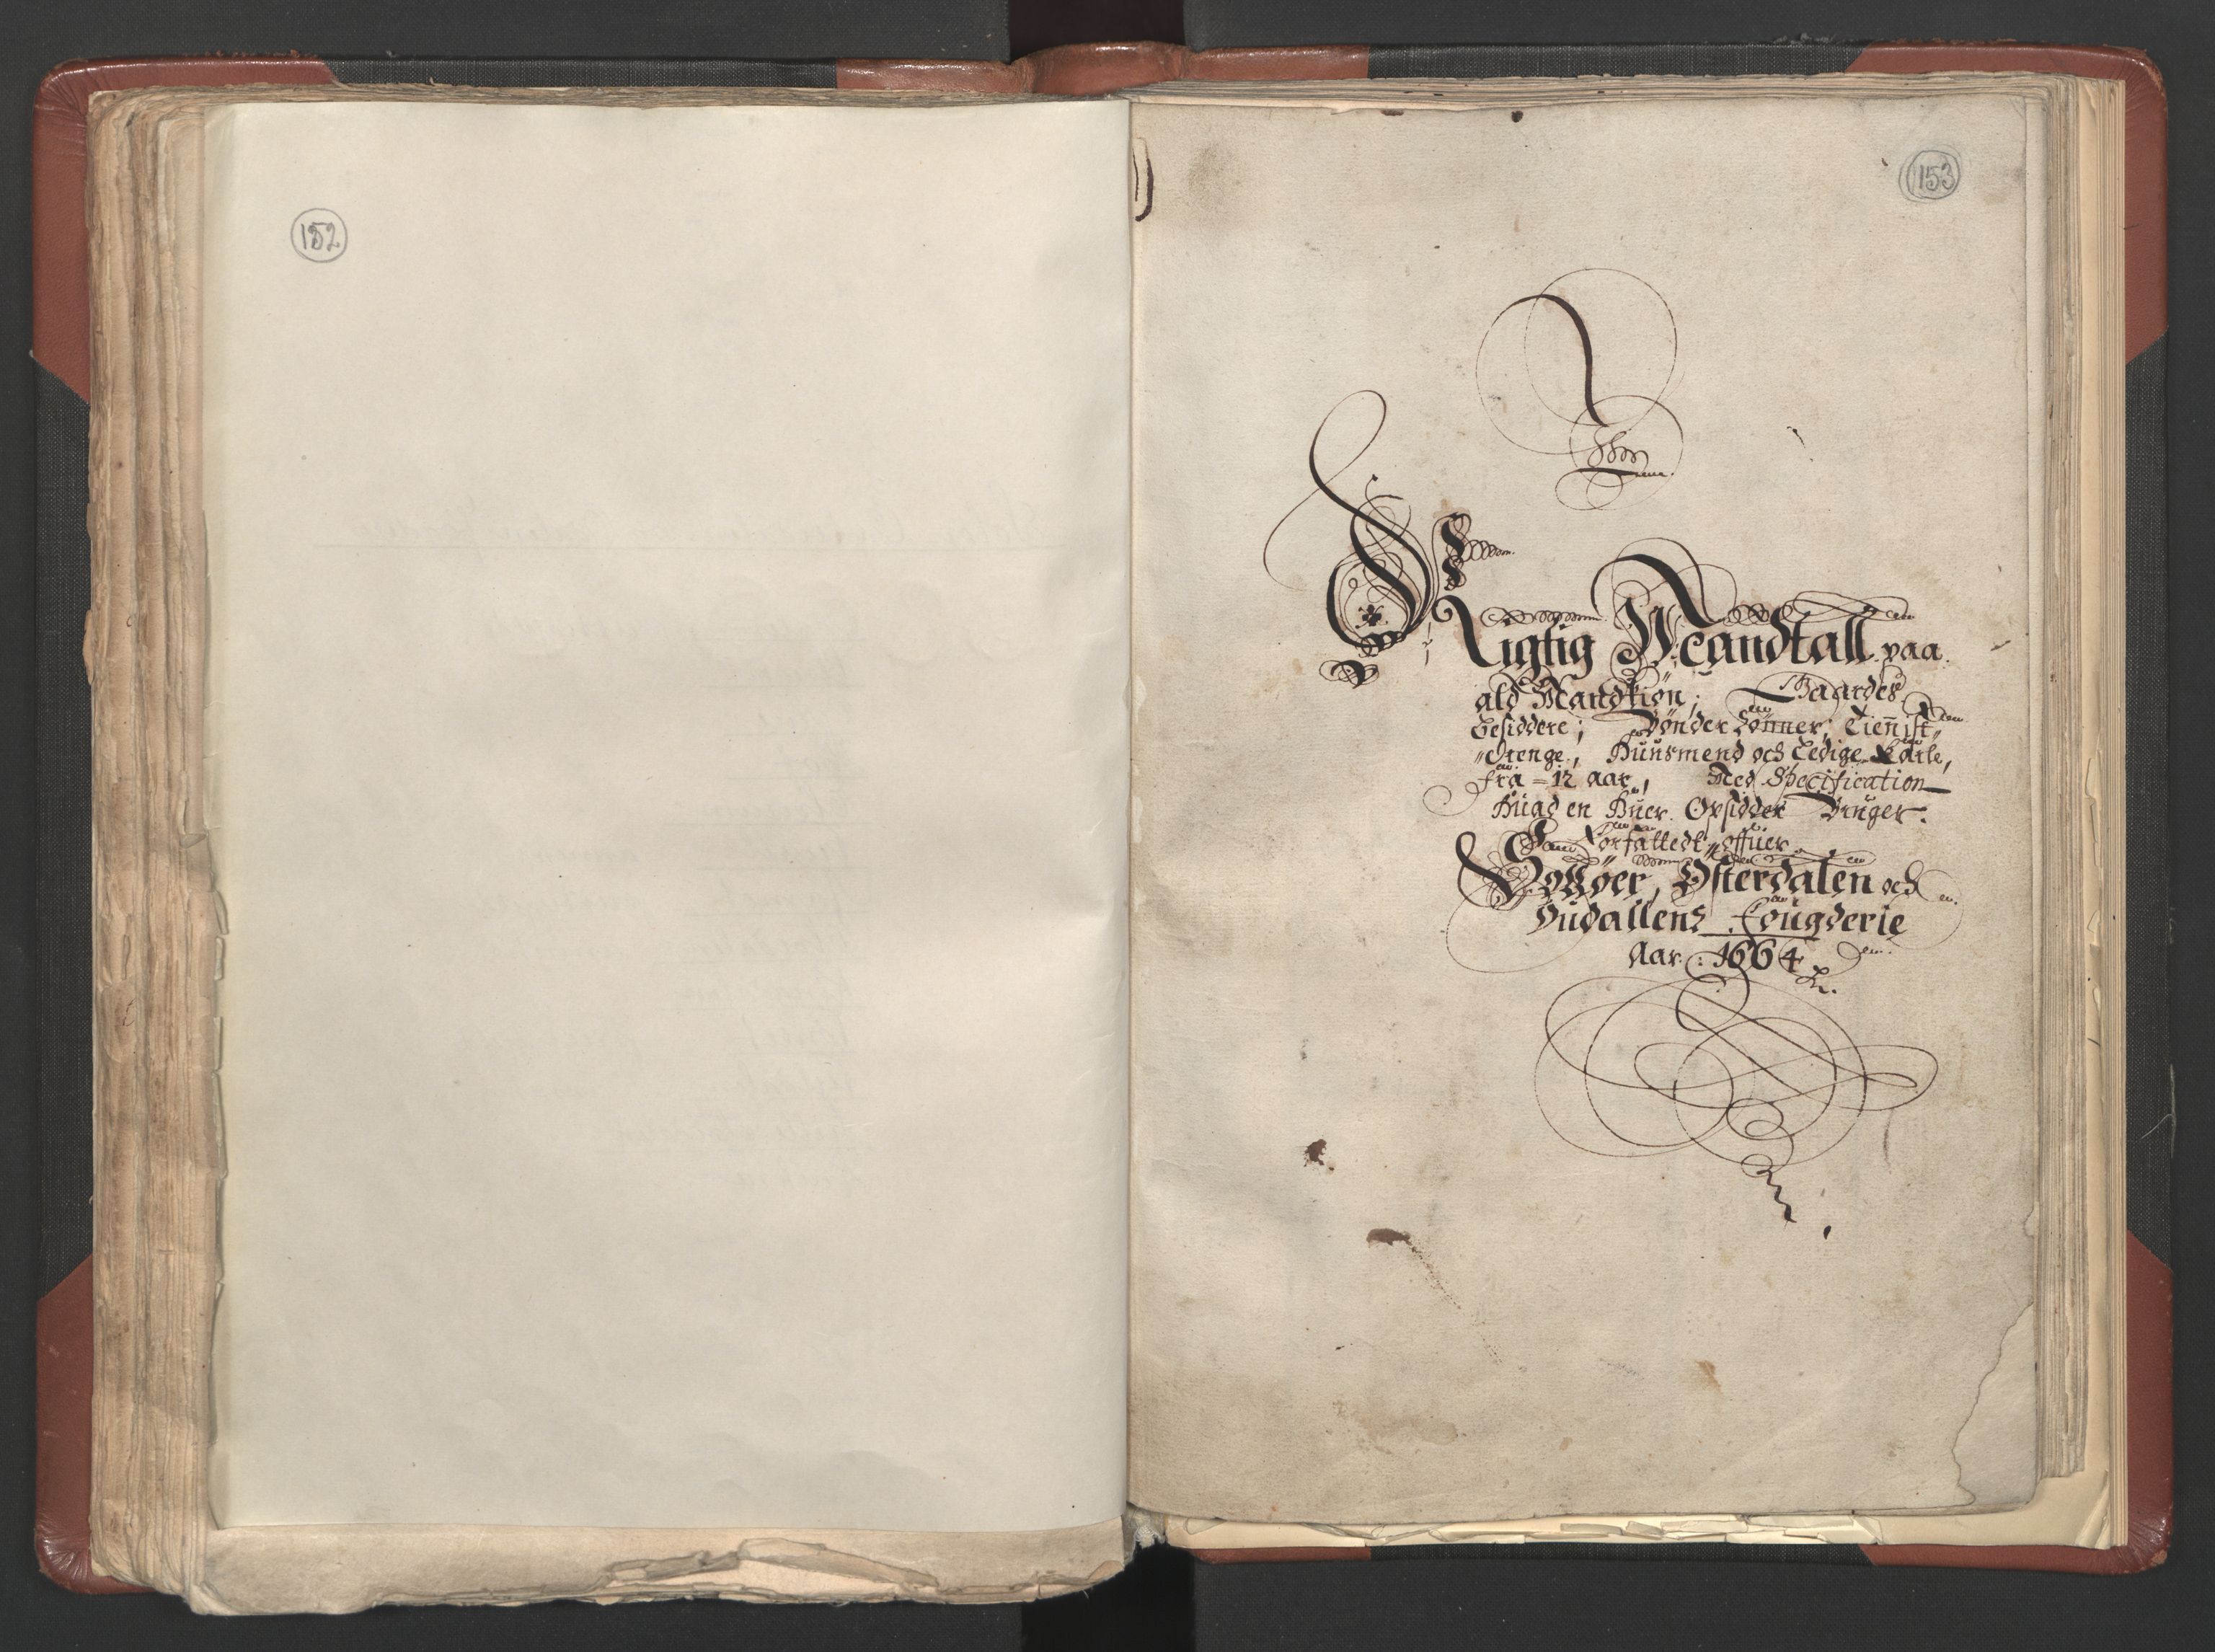 152
153
Rigtig Mandtall paa
ald Mandkiön; Gaardes
Besiddere; Bönder Sönner; Tiennist-
Drenge, Huusmend och Ledige Karle,
fra = 12 aar, Med Specification
Huad en Huer Opsidder Bruger.
Forfattedt offuer
Soløer, Østerdalen och
Oudallens Fougderie
Aar: 1664